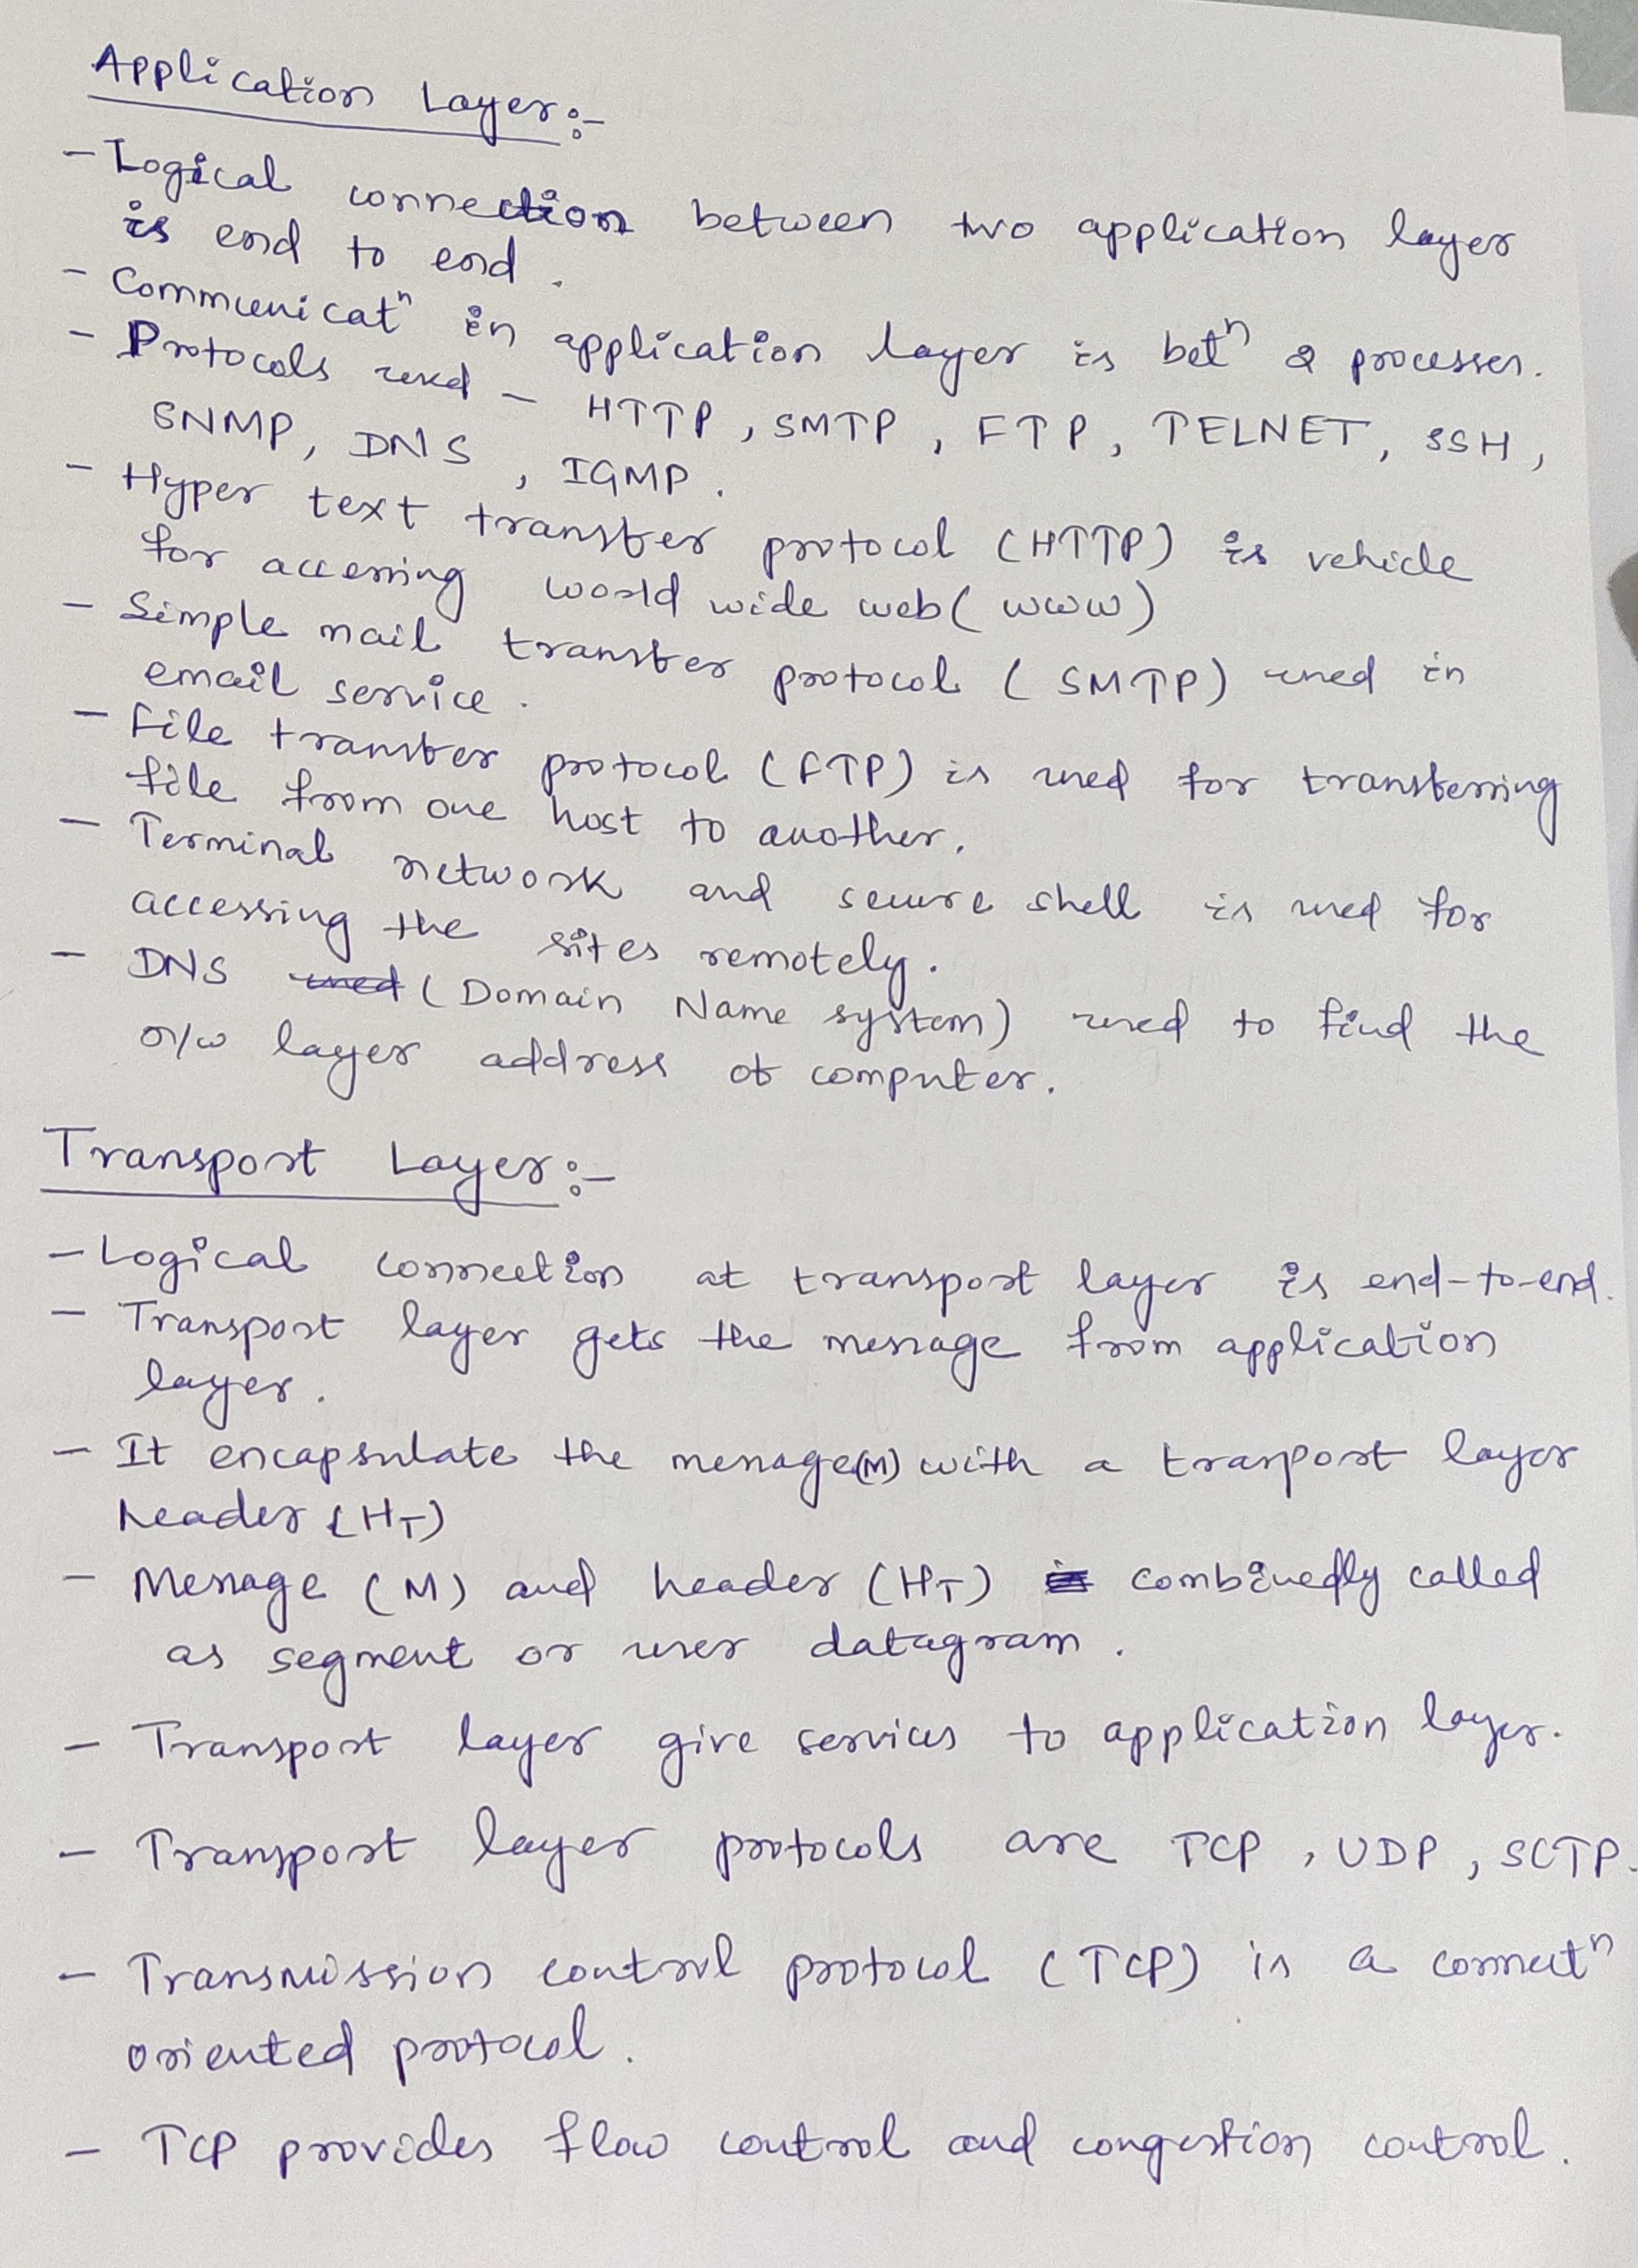 Application Layer:-
- Logical connection between two application layer
is end to end.
- Communicatⁿ in application layer is betⁿ 2 processes.
- Protocols used - HTTP, SMTP, FTP, TELNET, SSH,
SNMP, DNS, IGMP.
- Hyper text transfer protocol (HTTP) is vehicle
for accessing world wide web (www)
- Simple mail transfer protocol (SMTP) used in
email service.
- File transfer protocol (FTP) is used for transferring
file from one host to another.
- Terminal network and secure shell is used for
accessing the sites remotely.
- DNS used (Domain Name system) used to find the
n/w layer address of computer.
Transport Layer:-
- Logical connection at transport layer is end-to-end.
- Transport layer gets the message from application
layer.
- It encapsulate the message(M) with a tranport layer
header (H_T)
- Message (M) and header (H_T) is combinedly called
as segment or user datagram.
- Transport layer give services to application layer.
- Transport layer protocols are TCP, UDP, SCTP.
- Transmission control protocol (TCP) is a connectⁿ
oriented protocol.
- TCP provides flow control and congestion control.